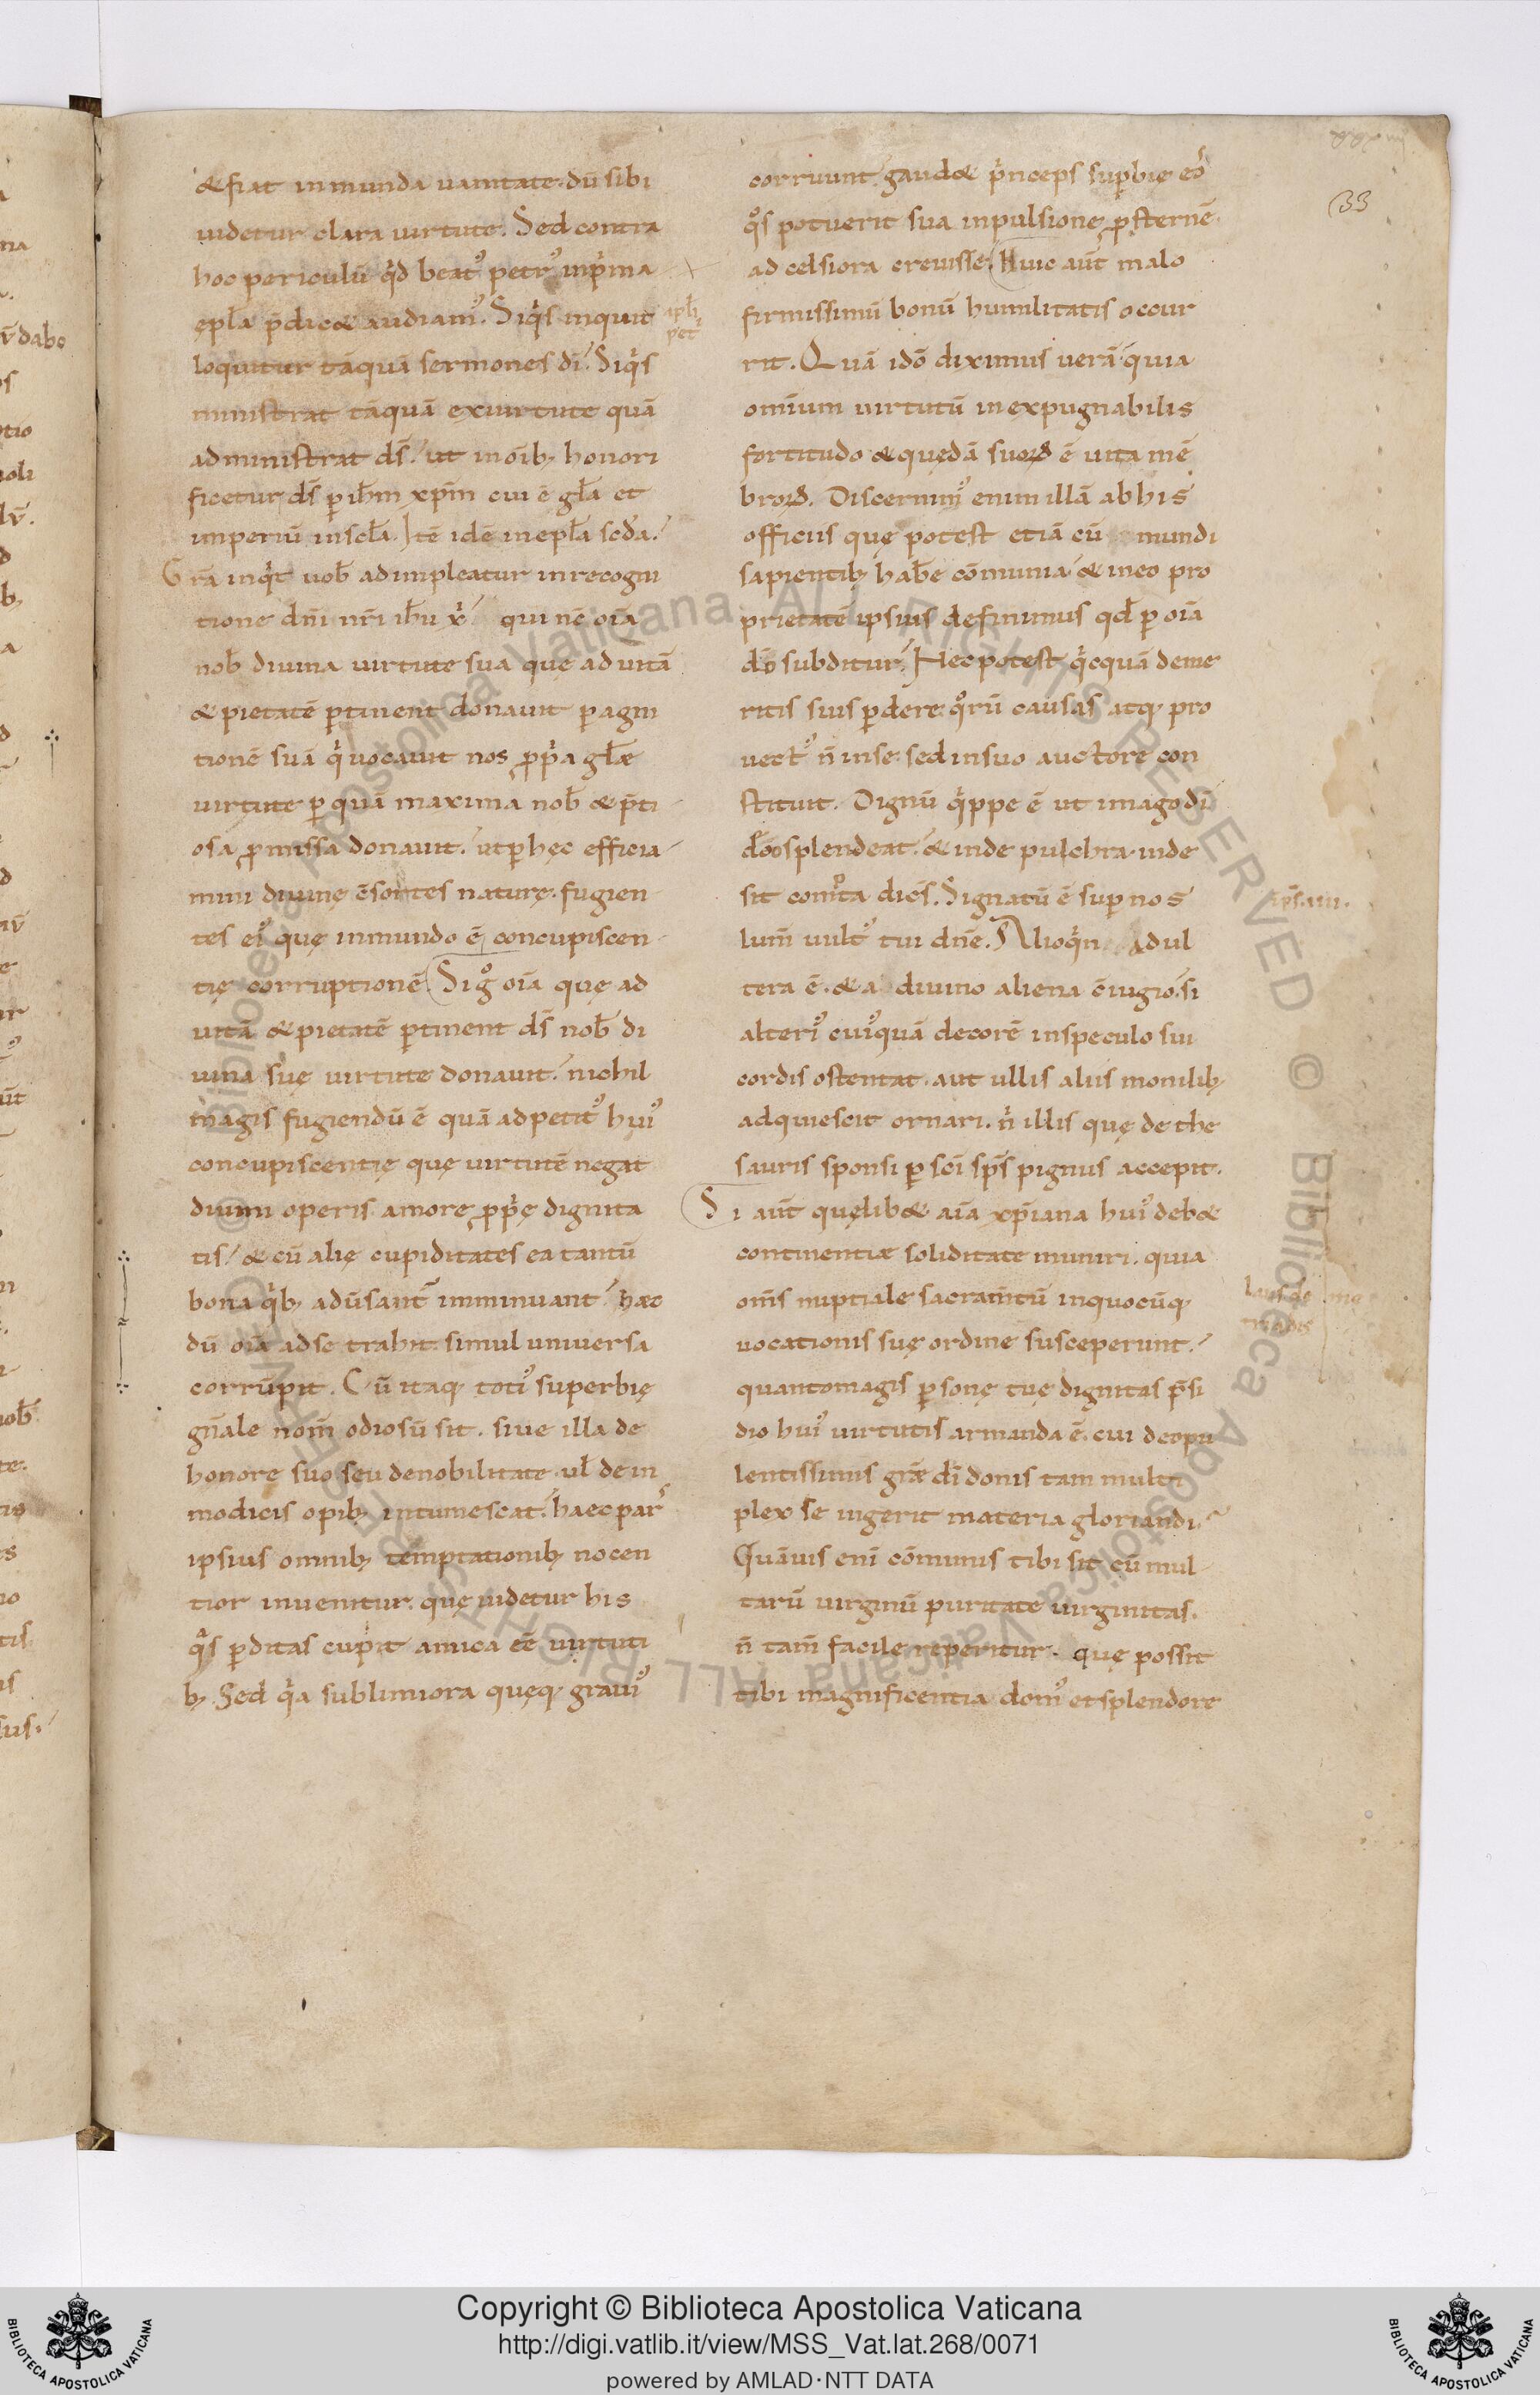 33
& fiat inmunda uanitate. dū sibi
uidetur clara uirtute. Sed contra
hoc periculū qd beatꝰ petrꝰ inpma
epła p̄dic& audiamꝰ. Siqs inquit
loquitur tāquā sermones di. Siqs
ministrat tāquā exuirtute quā
administrat ds̄. ut inoīb; honori
ficetur ds̄ p ihm xp̄m cui ē gła et
imperiū inscła. Itē idē inepła scda.
Gra inqt uob̄ adimpleatur inrecogni
tione dn̄i nr̄i ihu x̄ qui nē oīa
nob̄ diuina uirtute sua quę ad uitā
& pietatē ptinent donauit p agni
tionē suā q uocauit nos ppa głæ
uirtute p quā maxima nob̄ & p̄ti
osa pmissa donauit. ut p hęc efficia
mini diuinę ēsortes naturę. fugien
tes eiꝰ quę inmundo ē concupiscen
tię corruptionē Sig̊ oīa quę ad
uitā & pietatē ptinent ds̄ nob̄ di
uina suę uirtute donauit. nichil
magis fugiendū ē quā adpetitꝰ huiꝰ
concupiscentię quę uirtutē negat
diuini operis amore pprię dignita
tis. & cū alię cupiditates ea tantū
bona qb; adūsant imminuant. haec
dū oīa adse trahit. simul uniuersa
corrūpit. Cū itaq; totiꝰ superbię
gn̄ale nom̄ odiosū sit. siue illa de
honore suo seu denobilitate ul̄ dein
modicis opib; intumescat. haec pars
ipsius omnib; temptationib; nocen
tior inuenitur. quę uidetur his
qs pditas cupit amica eē uirtuti
b; Sed qa sublimiora quęq; grauiꝰ
apłi
pet
corruunt. gaud& pnceps supbię eos
qs potuerit sua inpulsione psternē.
ad celsiora creuisse. Huic aūt malo
firmissimū bonū humilitatis occur
rit. Quā idō diximus uerā. quia
omīum uirtutū inexpugnabilis
fortitudo & quędā suoꝝ ē uita mē
broꝝ. Discernimꝰ enim illā ab his
officiis quę potest etiā cū mundi
sapientib; hab̄e cōmunia. & ineo pro
prietatē ipsius definimus qd̄ p oīa
dō subditur. Nec potest qcquā deme
ritis suis pdere. qrū causas atq; pro
uectꝰ n̄ inse. sed insuo auctore con
stituit. Dignū qppe ē ut imago di
dō splendeat. & inde pulchra. inde
sit comta dicēs. Signatū ē sup nos
lum̄ uultꝰ tui dn̄e. Alioqn adul
tera ē. & a diuino aliena ēiugio. si
alteriꝰ cuiꝰquā decorē inspeculo sui
cordis ostentat. aut ullis aliis monilib;
adquiescit ornari. n illis quę de the
sauris sponsi p sci sps pignus accepit.
Si aūt quęlib& aīa xp̄iana huiꝰ deb&
continentiæ soliditate muniri. quia
oms nuptiale sacramtū inquocūq;
uocationis suę ordine susceperunt.
quantomagis psonę tuę dignitas p̄si
dio huiꝰ uirtutis armanda ē. cui deopu
lentissimis gr̄æ di donis tam multi
plex se ingerit materia gloriandi.
Quāuis enī cōmunis tibi sit cū mul
tarū uirginū puritate uirginitas.
n̄ tam̄ facile reperitur. quę possit
tibi magnificentia domꝰ et splendore
Copyright © Biblioteca Apostolica Vaticana
http://digi.vatlib.it/view/MSS_Vat.lat.268/0071
powered by AMLAD·NTT DATA